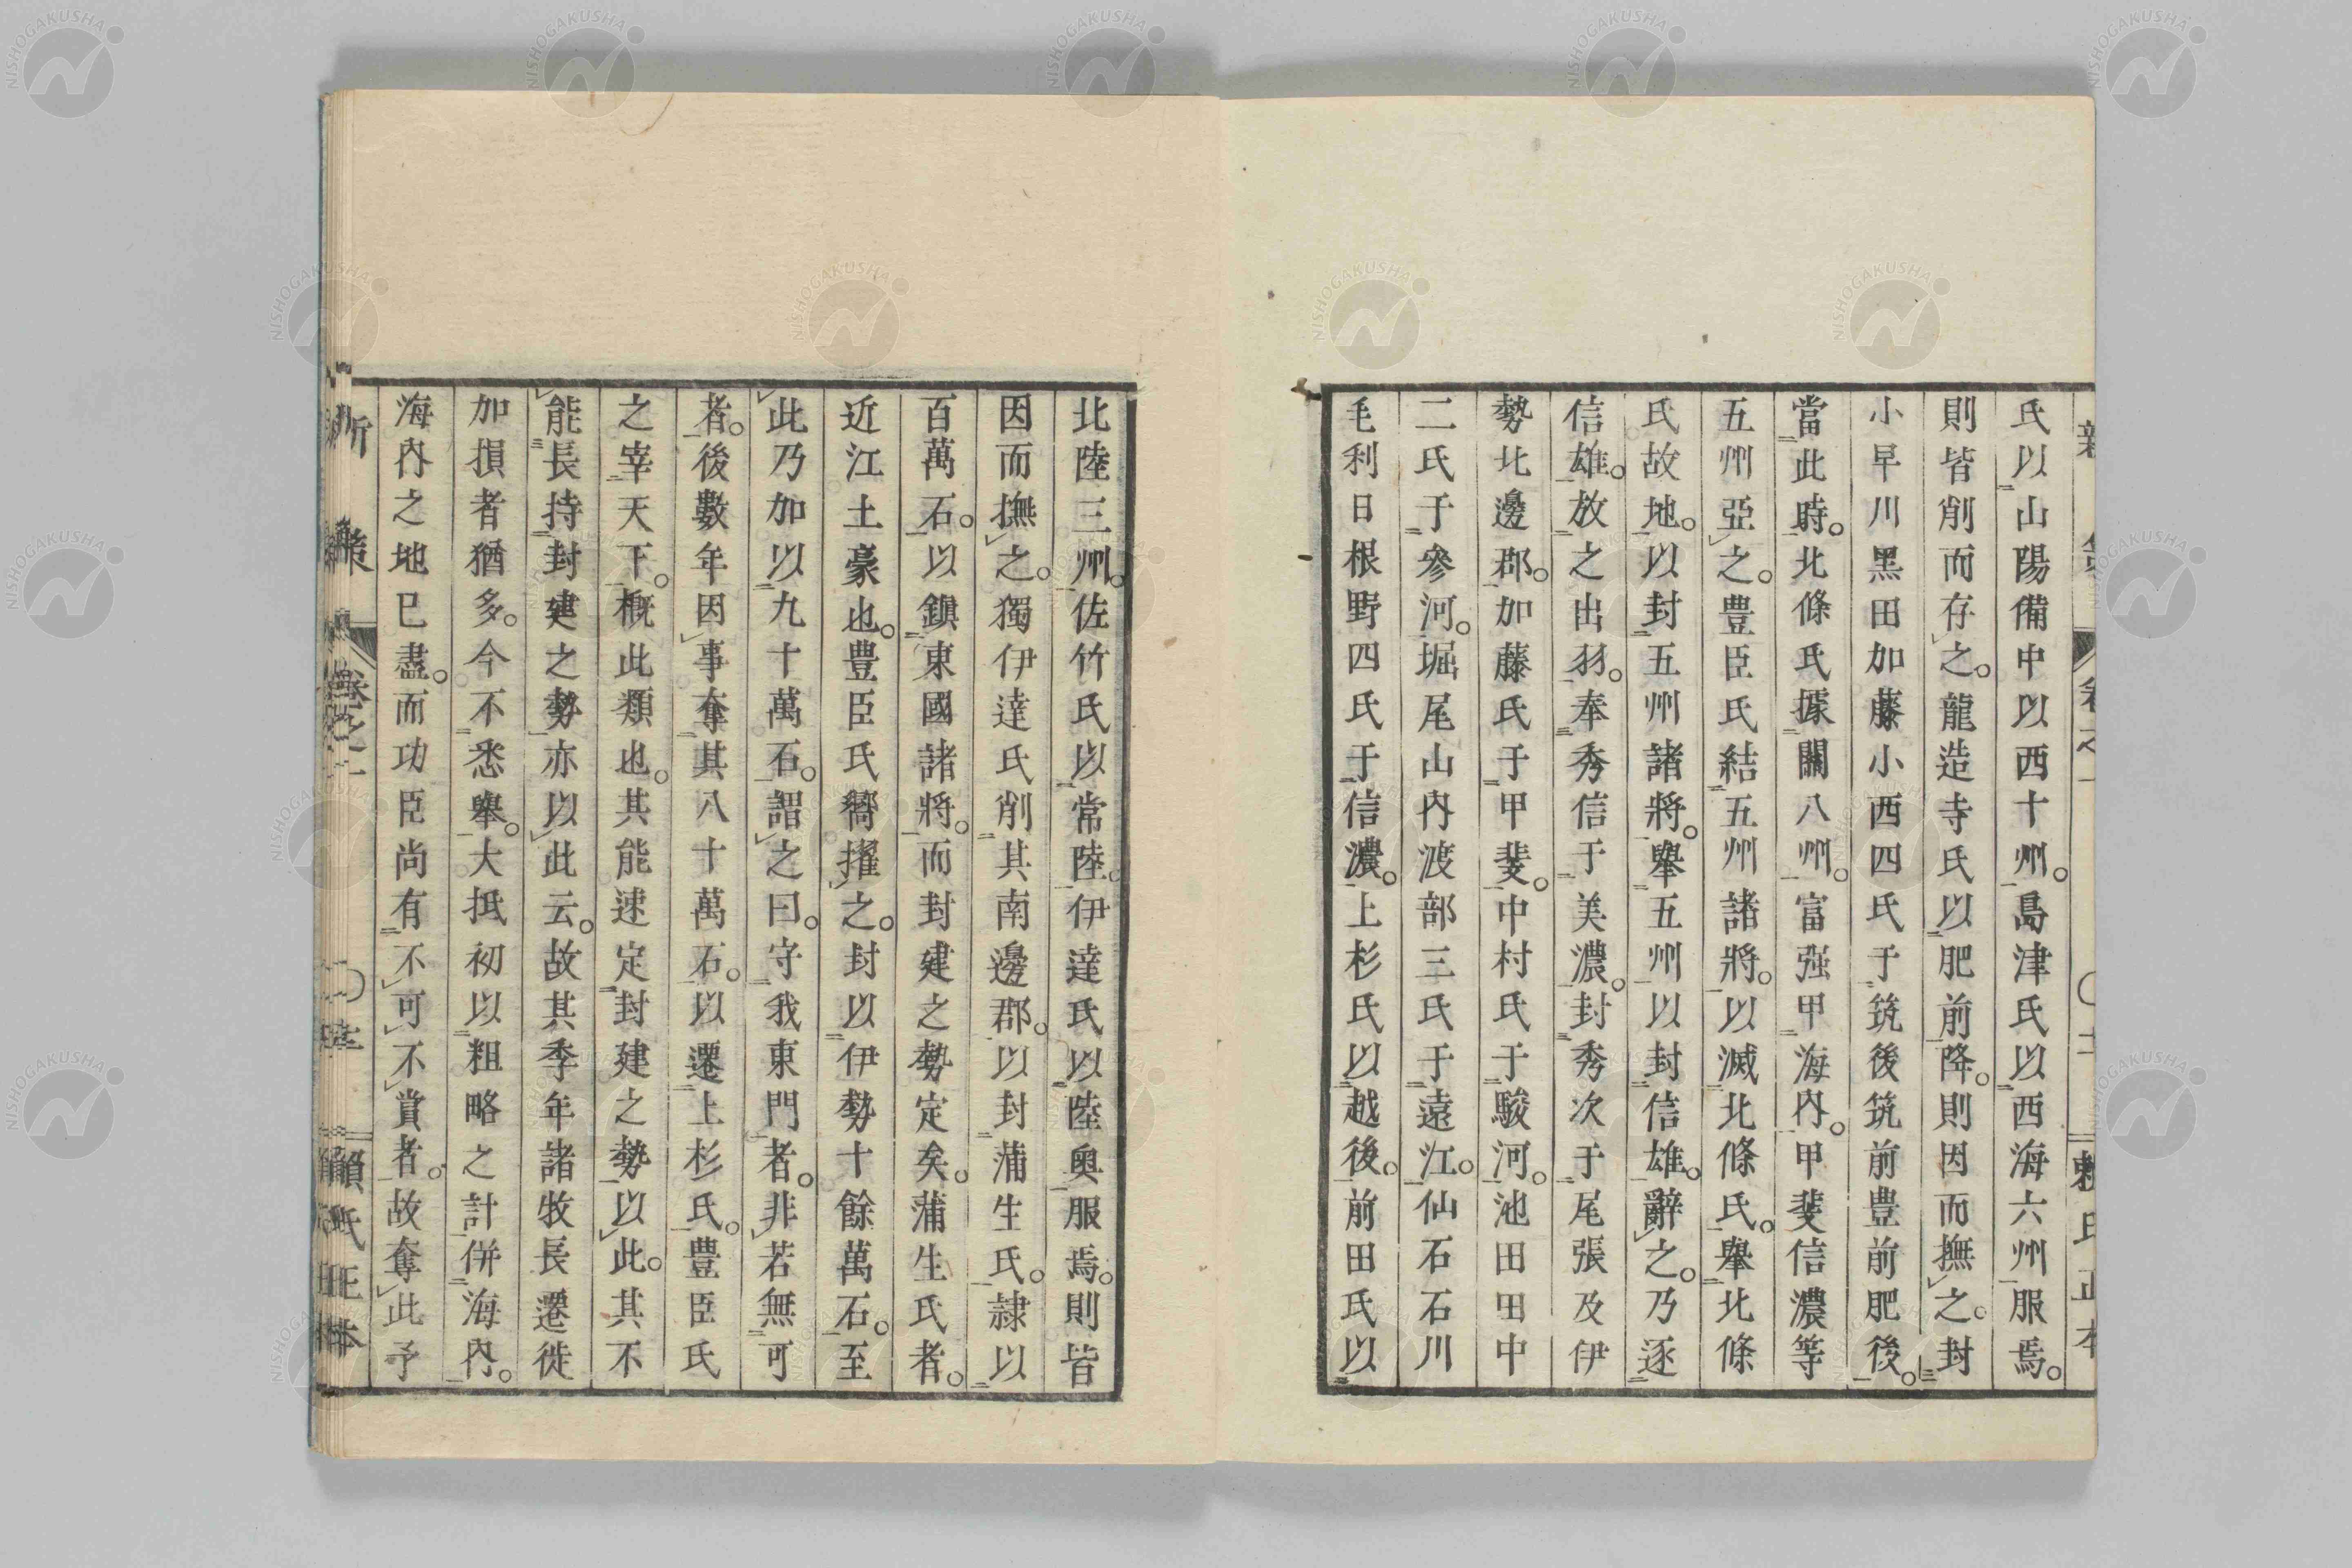 氏以山陽備中以西十州。島津氏以西海六州服焉。
則皆削而存之。龍造寺氏以肥前降。則因而撫之。封
小早川黑田加藤小西四氏于筑後筑前豊前肥後。
當此時。北條氏據關八州。富强甲海內。甲斐信濃等
五州亞之。豊臣氏結五州諸將。以滅北條氏。舉北條
氏故地。以封五州諸將。舉五州以封信雄。辭之。乃逐
信雄。放之出羽。奉秀信于美濃。封秀次于尾張及伊
勢北邊郡。加藤氏于甲斐。中村氏于駿河。池田田中
二氏于參河。堀尾山內渡部三氏于遠江。仙石石川
毛利日根野四氏于信濃。上杉氏以越後。前田氏以
北陸三州。佐竹氏以常陸。伊達氏以陸奧服焉。則皆
因而撫之。獨伊達氏削其南邊郡。以封蒲生氏。隷以
百萬石。以鎭東國諸將。而封建之勢定矣。蒲生氏者。
近江土豪也。豊臣氏嚮擢之。封以伊勢十餘萬石。至
此乃加以九十萬石。謂之曰。守我東門者。非若無可
者。後數年因事奪其八十萬石。以遷上杉氏。豊臣氏
之宰天下。概此類也。其能速定封建之勢以此。其不
能長持封建之勢亦以此云。故其季年諸牧長遷徙
加損者猶多。今不悉舉。大抵初以粗略之計。併海內。
海內之地已盡。而功臣尚有不可不賞者。故奪此予
新策 卷之一 賴氏正本